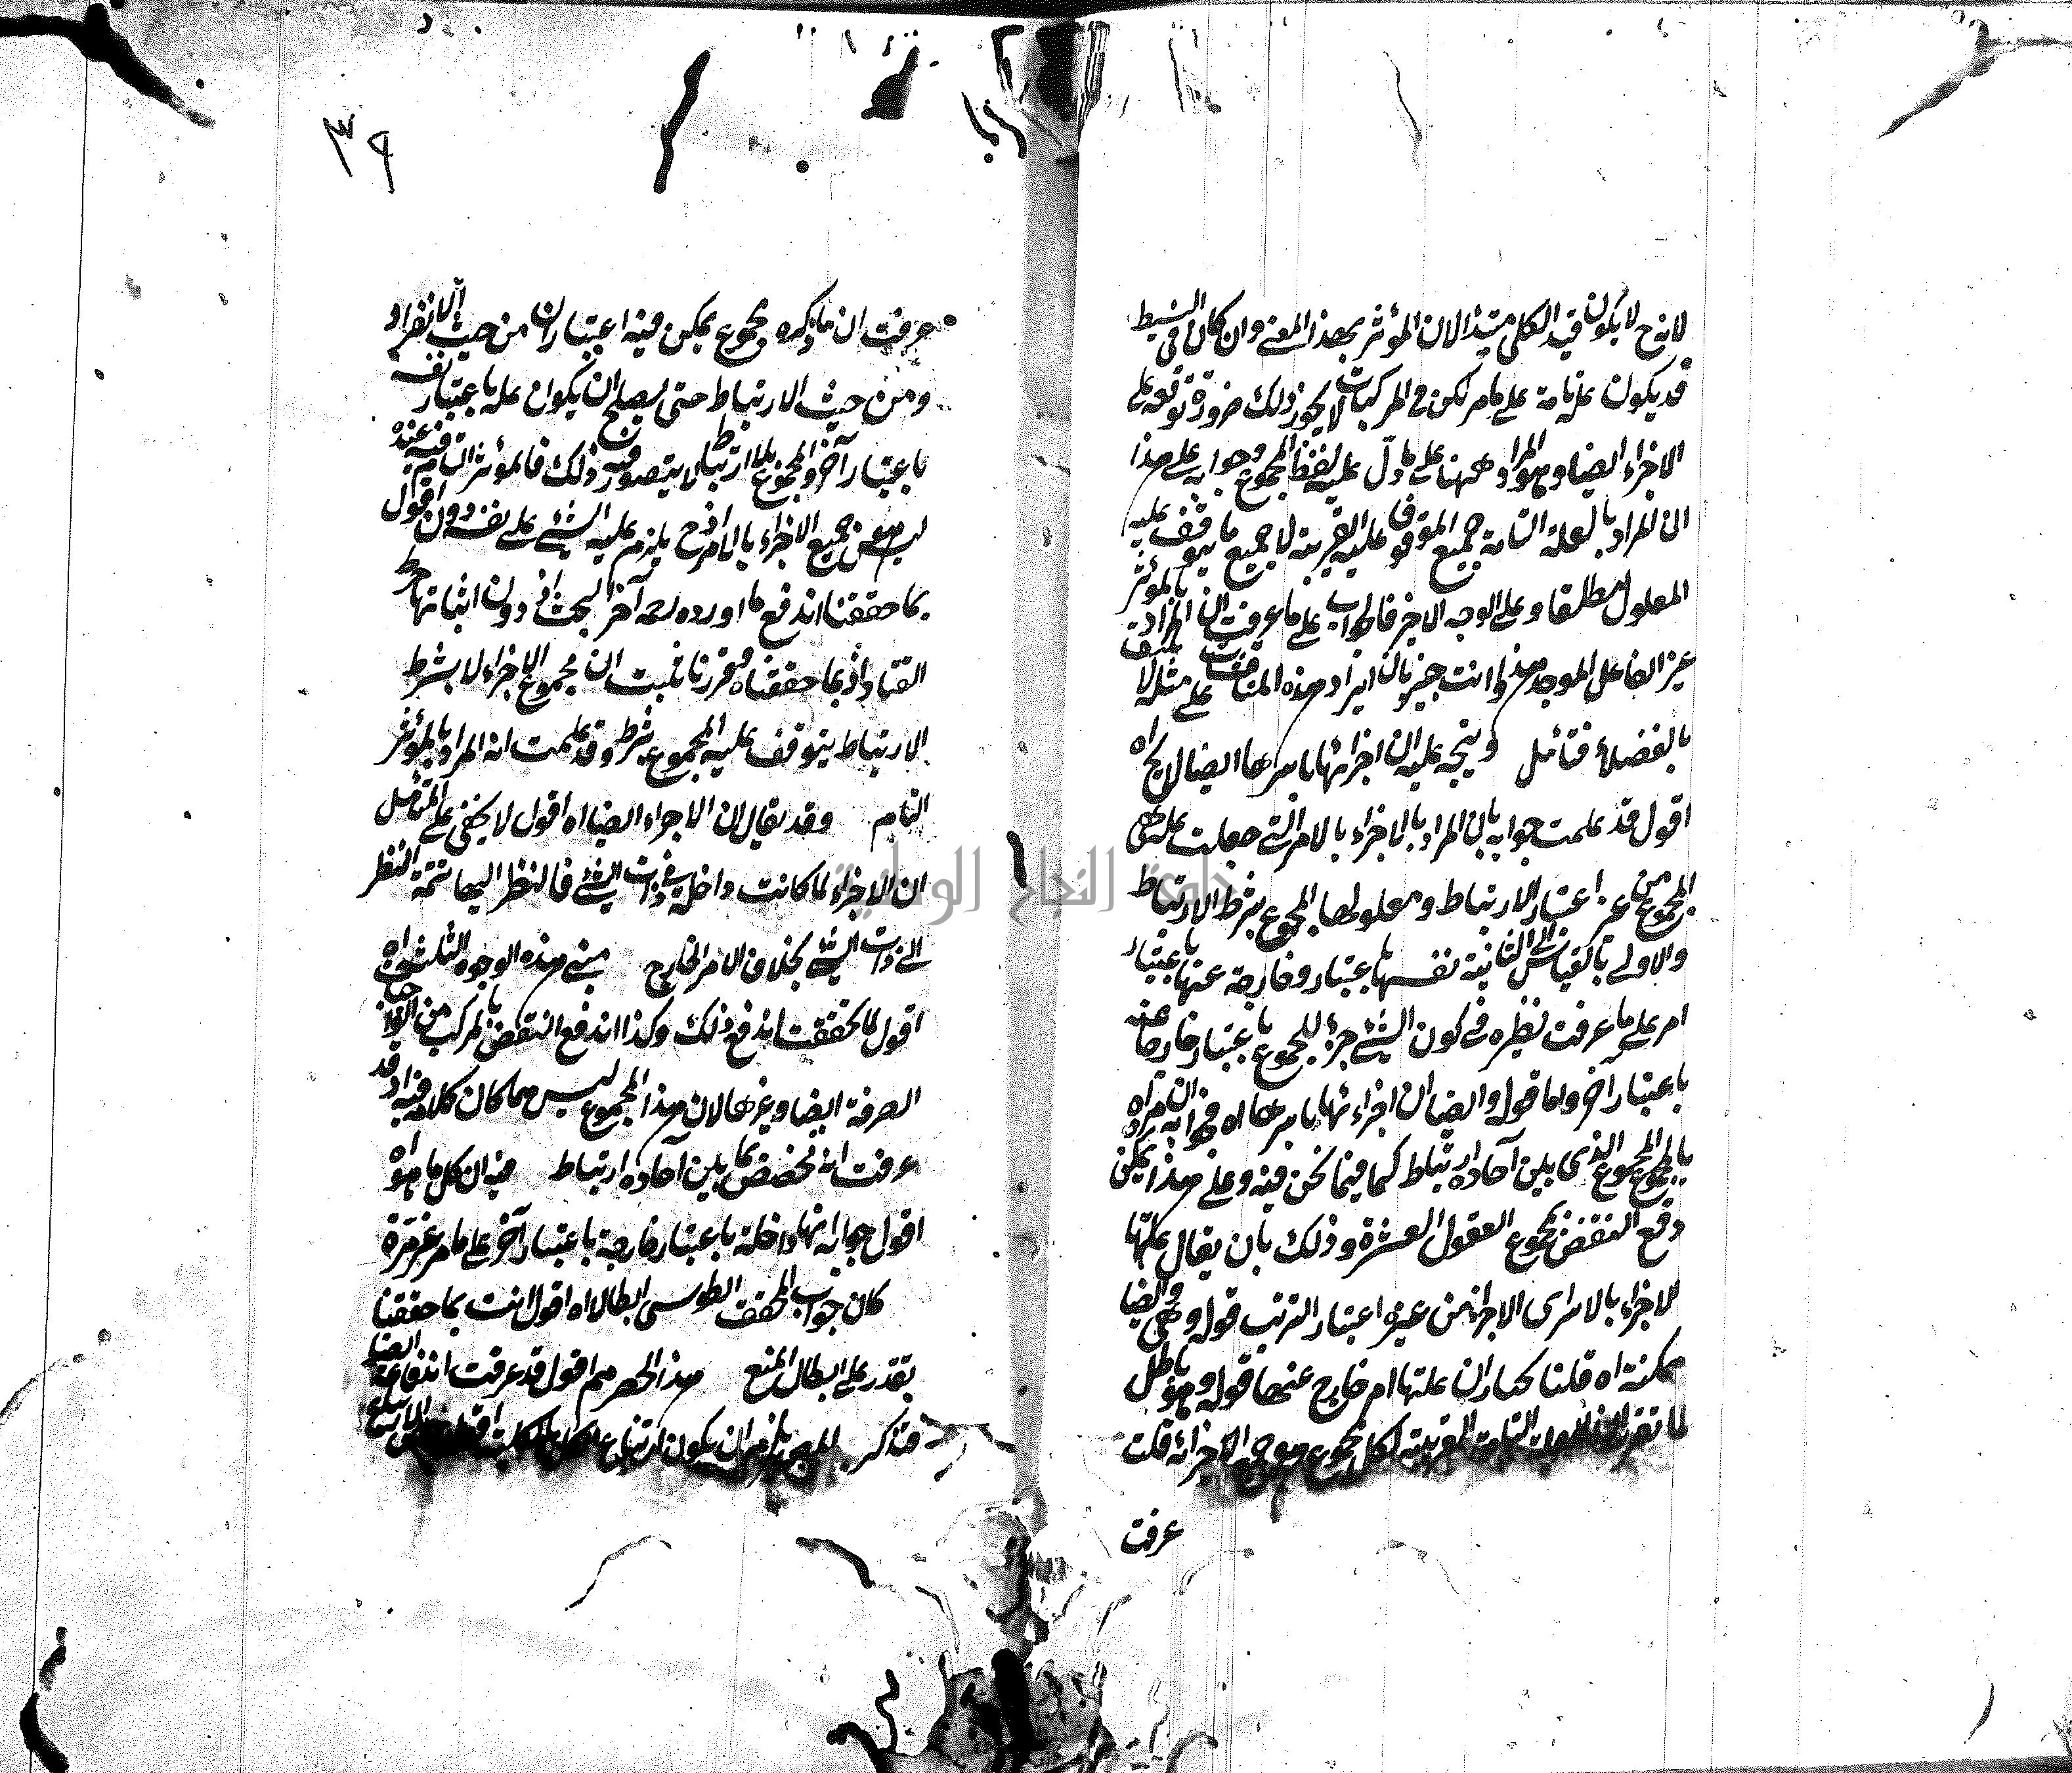 لانه ح لا يكون قيد الكلى مفيدا لان المؤثر بهذا المعنى وان كان فى البسيط
قد يكون علة تامة على ما مر لكن فى المركبات لا يجوز ذلك ضرورة توقفه على
الاجزاء ايضا وهو المراد ههنا على ما دلّ عليه لفظ المجموع وجوابه على هذا
ان المراد بالعلة التامة جميع الموقوف عليه القريبة لا جميع ما يتوقف عليه
المعلول مطلقا وعلى الوجه الاخير فالجواب على ما عرفت ان المراد بالمؤثر
غير الفاعل الموجد هذا وانت خبير بان ايراد هذه المناقشات على مثله لا يليق
بالفضلاء فتأمل ويتجه عليه ان اجزائها باسرها ايضا لا يج اه
اقول قد علمت جوابه بان المراد بالاجزاء بالاسر التى جعلت علة هى
المجموع من غير اعتبار الارتباط ومعلولها المجموع بشرط الارتباط
والاولى بالقياس الى الثانية نفسها باعتبار وخارجة عنها باعتبار
امر على ما عرفت نظيره فى كون الشئ جزء للمجموع باعتبار خارجا عنه
باعتبار آخر واما قوله وايضا ان اجزاء نها باسرها اه فجوابه ان مراده
بالمجموع المجموع الذى بين آحاده ارتباط كما فيما نحن فيه وعلى هذا يمكن
دفع النقض بمجموع العقول العشرة وذلك بان يقال علتها
الاجزاء بالاسر اى الاجزاء من غير اعتبار الترتب قوله وهى ايضا
ممكنة اه قلنا نختار ان علتها امر خارج عنها قوله وهو باطل
لما تقرر ان العلة التامة القريبة لكل مجموع هو جميع اجزائه قلت
عرفت
٣٩
عرفت ان ما ذكره مجموع يمكن فيه اعتباران من حيث الانفراد
ومن حيث الارتباط حتى يصلح ان يكون علة باعتبار نفسه
باعتبار آخر والمجموع بلا ارتباط لا يتصور فيه ذلك فالمؤثر التام فيه عنده
ليس هو عن جميع الاجزاء بالاسر اذ ح يلزم علية الشئ على نفسه دون اقول
بما حققنا اندفع ما اورده رحمه آخر البحث اذ دون اثباتها خرط
القتاد اذ بما حققناه وقررنا ثبت ان مجموع الاجزاء لا بشرط
الارتباط يتوقف عليه المجموع بشرط وقد علمت انه المراد بالمؤثر
التام وقد يقال ان الاجزاء ايضا اه اقول لا يخفى على المتأمل
ان الاجزاء لما كانت داخلة فى ذات الشئ فالنظر اليها تتمة النظر
الى ذات الشئ بخلاف الامر الخارج مبنى هذه الوجوه الثلثة اه
اقول لما تحققت اندفع ذلك وكذا اندفع النقض بالمركب من الواجبات
الصرفة ايضا وغيرها لان هذا المجموع ليس مما كان كلامه فيه اذ قد
عرفت انه تخصص بما بين آحاده ارتباط فيه ان كل ما هو اه
اقول جوابه انها داخلة باعتبار خارجة باعتبار آخر على ما مر غير مرة
كان جواب المحقق الطوسى ابطالا اه اقول انت بما حققنا
تقدر على ابطال المنع هذا الحصر مم اقول قد عرفت اندفاعه ايضا
فتذكر يلزم ان يكون ارتفاع